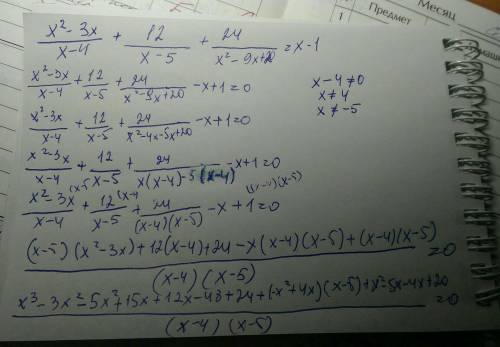 Месяц
Предмет
1
(x²-3x)/(x-4) + 12/(x-5) + 24/(x²-9x+20) = x-1
(x²-3x)/(x-4) + 12/(x-5) + 24/(x²-9x+20) -x+1=0
x-4≠0
x≠4
x≠-5
(x²-3x)/(x-4) + 12/(x-5) + 24/(x²-4x-5x+20) -x+1=0
(x²-3x)/(x-4) + 12/(x-5) + 24/(x(x-4)-5(x-4)) -x+1=0
(x²-3x)/(x-4) (x-5 + 12/(x-5) (x-4 + 24/((x-4)(x-5)) -x+1=0 (x-4)(x-5)
((x-5)(x²-3x)+12(x-4)+24-x(x-4)(x-5)+(x-4)(x-5))/((x-4)(x-5)) =0
(x³-3x²-5x²+15x+12x-48+24+(-x²+4x)(x-5)+x²-5x-4x+20)/((x-4)(x-5)) =0